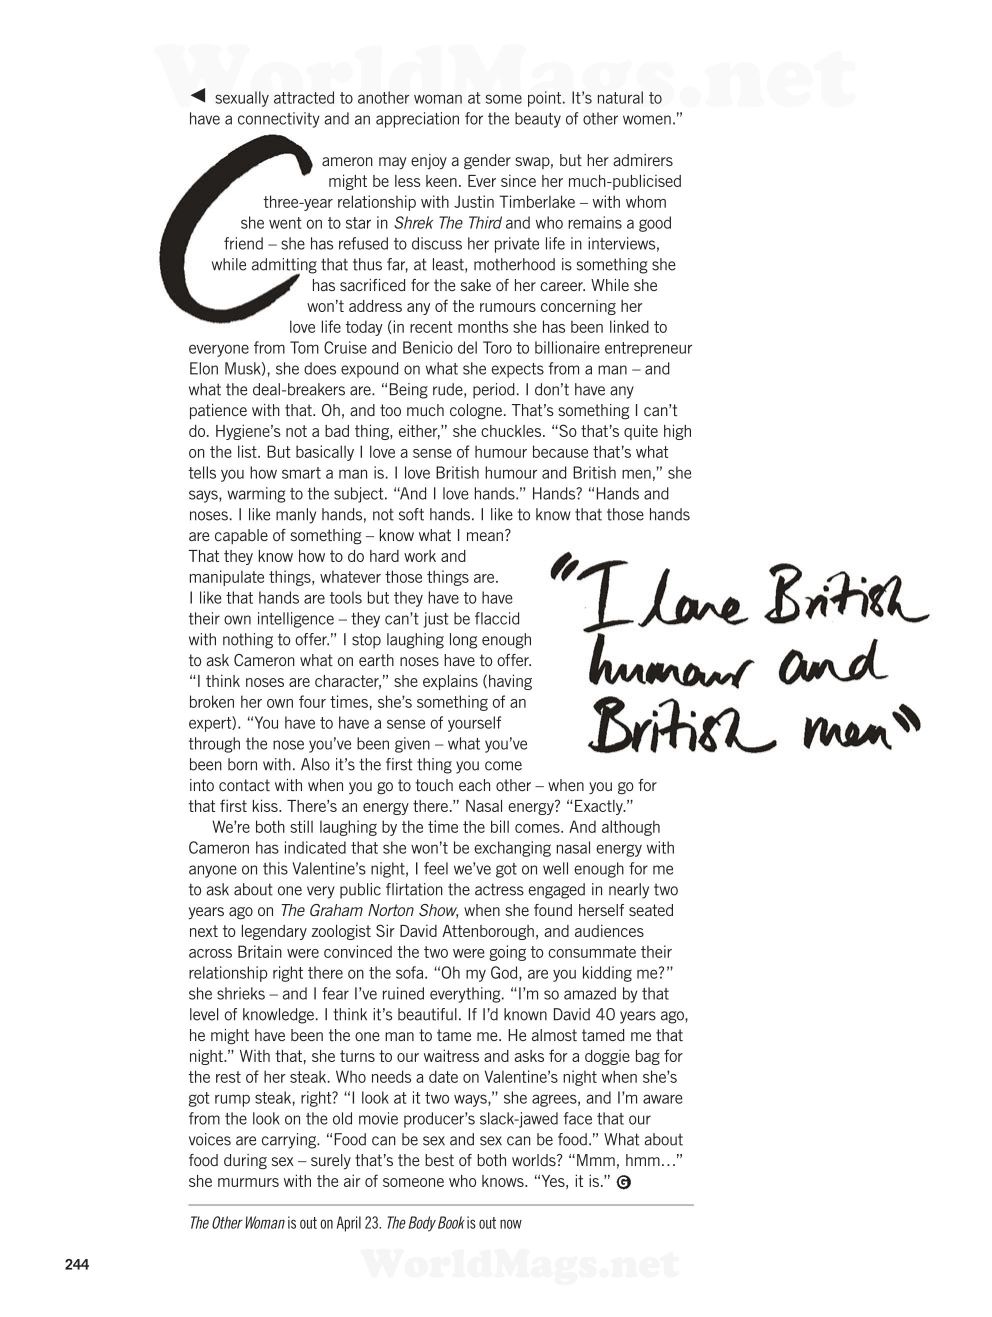 WorldMags.net
◄ sexually attracted to another woman at some point. It’s natural to
have a connectivity and an appreciation for the beauty of other women.”
Cameron may enjoy a gender swap, but her admirers
might be less keen. Ever since her much-publicised
three-year relationship with Justin Timberlake – with whom
she went on to star in Shrek The Third and who remains a good
friend – she has refused to discuss her private life in interviews,
while admitting that thus far, at least, motherhood is something she
has sacrificed for the sake of her career. While she
won’t address any of the rumours concerning her
love life today (in recent months she has been linked to
everyone from Tom Cruise and Benicio del Toro to billionaire entrepreneur
Elon Musk), she does expound on what she expects from a man – and
what the deal-breakers are. “Being rude, period. I don’t have any
patience with that. Oh, and too much cologne. That’s something I can’t
do. Hygiene’s not a bad thing, either,” she chuckles. “So that’s quite high
on the list. But basically I love a sense of humour because that’s what
tells you how smart a man is. I love British humour and British men,” she
says, warming to the subject. “And I love hands.” Hands? “Hands and
noses. I like manly hands, not soft hands. I like to know that those hands
are capable of something – know what I mean?
That they know how to do hard work and
manipulate things, whatever those things are.
I like that hands are tools but they have to have
their own intelligence – they can’t just be flaccid
with nothing to offer.” I stop laughing long enough
to ask Cameron what on earth noses have to offer.
“I think noses are character,” she explains (having
broken her own four times, she’s something of an
expert). “You have to have a sense of yourself
through the nose you’ve been given – what you’ve
been born with. Also it’s the first thing you come
into contact with when you go to touch each other – when you go for
that first kiss. There’s an energy there.” Nasal energy? “Exactly.”
We’re both still laughing by the time the bill comes. And although
Cameron has indicated that she won’t be exchanging nasal energy with
anyone on this Valentine’s night, I feel we’ve got on well enough for me
to ask about one very public flirtation the actress engaged in nearly two
years ago on The Graham Norton Show, when she found herself seated
next to legendary zoologist Sir David Attenborough, and audiences
across Britain were convinced the two were going to consummate their
relationship right there on the sofa. “Oh my God, are you kidding me?”
she shrieks – and I fear I’ve ruined everything. “I’m so amazed by that
level of knowledge. I think it’s beautiful. If I’d known David 40 years ago,
he might have been the one man to tame me. He almost tamed me that
night.” With that, she turns to our waitress and asks for a doggie bag for
the rest of her steak. Who needs a date on Valentine’s night when she’s
got rump steak, right? “I look at it two ways,” she agrees, and I’m aware
from the look on the old movie producer’s slack-jawed face that our
voices are carrying. “Food can be sex and sex can be food.” What about
food during sex – surely that’s the best of both worlds? “Mmm, hmm…”
she murmurs with the air of someone who knows. “Yes, it is.” G
“I love British
humour and
British men”
The Other Woman is out on April 23. The Body Book is out now
244
WorldMags.net